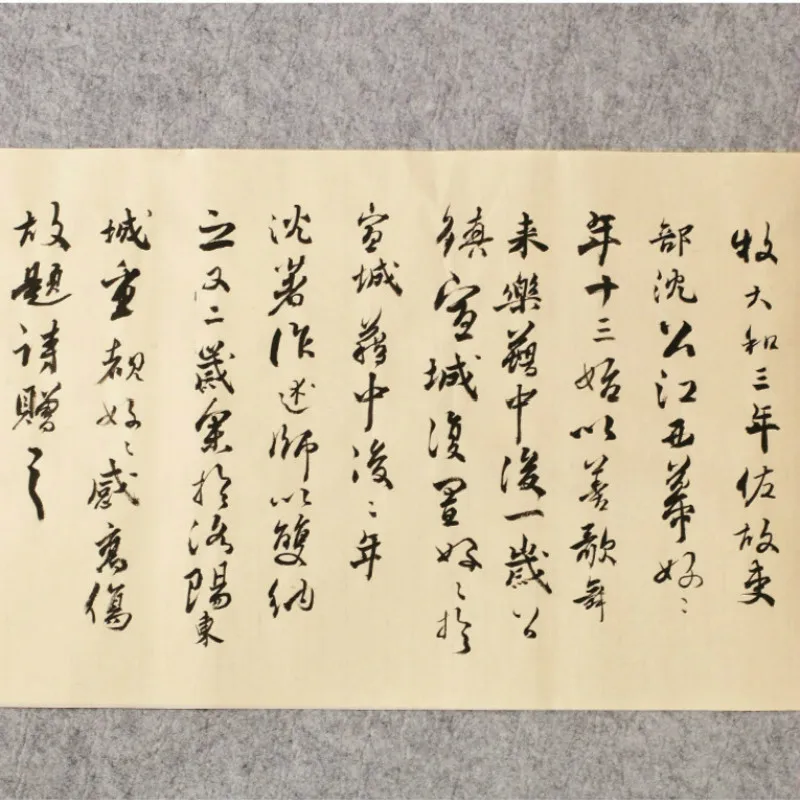 牧大和三年佐故吏
部沈公江西幕好〻
年十三始以善歌舞
来樂籍中後一歲公
鎮宣城復置好〻於
宣城籍中後二年
沈著作述師以雙納
之又二歲余於洛陽東
城重覩好〻感舊傷
故題詩贈之